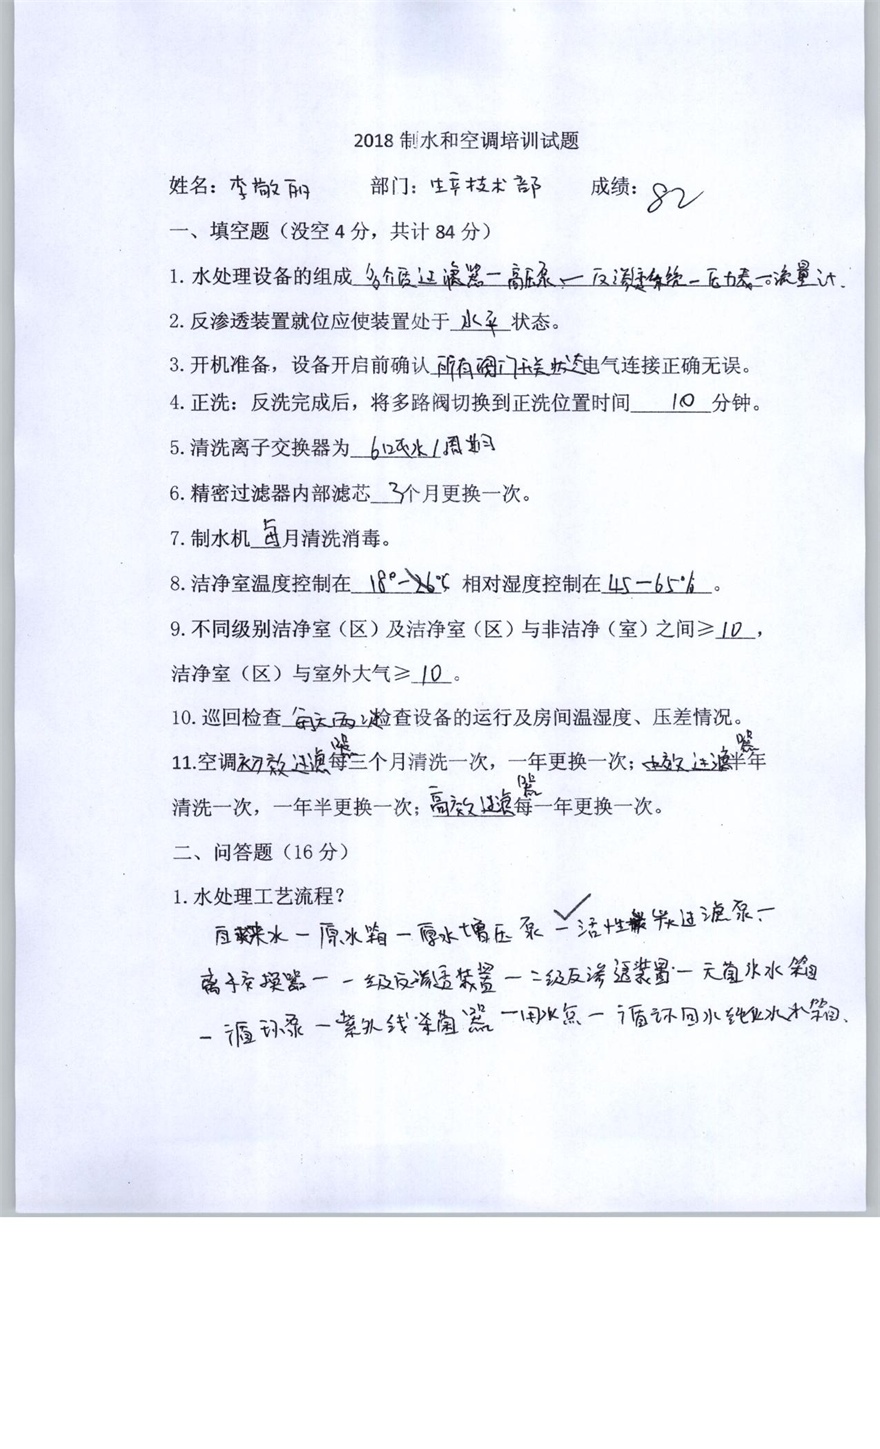 2018 制水和空调培训试题
姓名：李敬丽 部门：生产技术部 成绩：82
一、填空题（没空 4 分，共计 84 分）
1. 水处理设备的组成 多介质过滤器一高压泵一反渗透系统一压力表一流量计.
2. 反渗透装置就位应使装置处于 水平 状态。
3. 开机准备，设备开启前确认 所有阀门开关状态电气连接正确无误。
4. 正洗：反洗完成后，将多路阀切换到正洗位置时间 10 分钟。
5. 清洗离子交换器为 6吨水/周期
6. 精密过滤器内部滤芯 3个月更换一次。
7. 制水机 每月清洗消毒。
8. 洁净室温度控制在 18°—26℃ 相对湿度控制在 45—65% 。
9. 不同级别洁净室（区）及洁净室（区）与非洁净（室）之间≥ 10 ，
洁净室（区）与室外大气≥ 10 。
10. 巡回检查 每天两次检查设备的运行及房间温湿度、压差情况。
11.空调初效过滤器每三个月清洗一次，一年更换一次；中效过滤器半年
清洗一次，一年半更换一次；高效过滤器每一年更换一次。
二、问答题（16 分）
1. 水处理工艺流程？
自来水一原水箱一原水增压泵一活性炭过滤泵一
离子交换器一一级反渗透装置一二级反渗透装置一无菌水水箱
一循环泵一紫外线杀菌器一用水点一循环回水纯化水水箱、